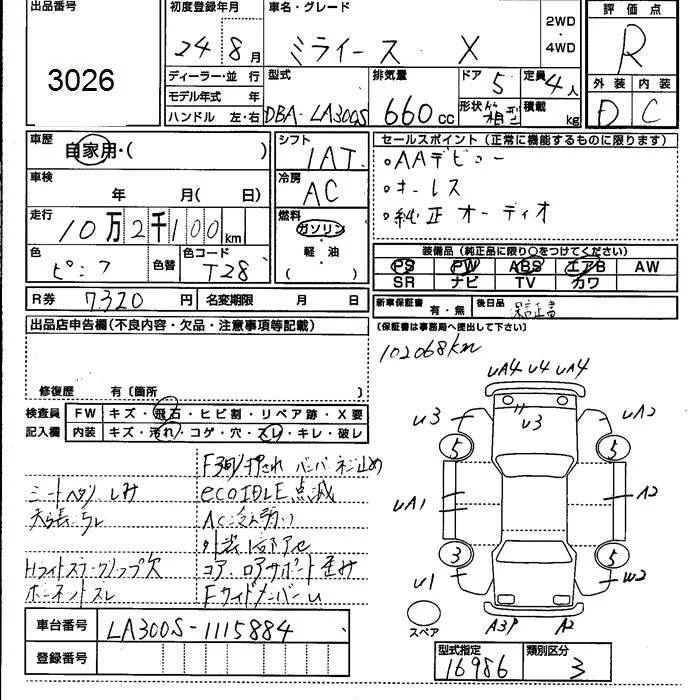 出品番号
3026
初度登録年月
24年8月
車名・グレード
ミライース X
2WD・4WD
評価点
R
外装 内装
D C
ディーラー・並行
モデル年式 年
ハンドル 左・右
型式
DBA-LA300S
排気量
660cc
ドア
5
形状 箱型
定員
4人
積載 kg
車歴
自家用・( )
車検
年 月(日)
走行
10万2千100km
色
ピンク
色替
色コード
T28
シフト
IAT
冷房
AC
燃料
ガソリン
・
軽・油
( ・ )
セールスポイント(正常に機能するものに限ります)
。AAデビュー
。キーレス
。純正オーディオ
装備品(純正品に限り○をつけてください)
PS PW ABS エアB AW
SR ナビ TV カワ
R券 7320円
名変期限 月 日
新車保証書 有・無
後日品 保証書
(保証書は事務局へ提出して下さい)
出品店申告欄(不良内容・欠品・注意事項等記載)
修復歴 有〔箇所 〕
検査員記入欄
FW キズ・飛石・ヒビ割・リペア跡・X要
内装 キズ・汚れ・コゲ・穴・スレ・キレ・破レ
シートヘタリ、しみ
天張ヨゴレ
Hライトステークリップ欠
ボーネットズレ
eco IDLE点滅
AC冷え弱い
コア、ロアサポート歪み
Fサイドメンバーu
102068km
uA4 u4 uA4
u3
u3
uA2
5
5
uA1
A2
3
5
u1
W2
スペア
A3P
A2
車台番号
LA300S-1115884
登録番号
型式指定
16986
類別区分
3